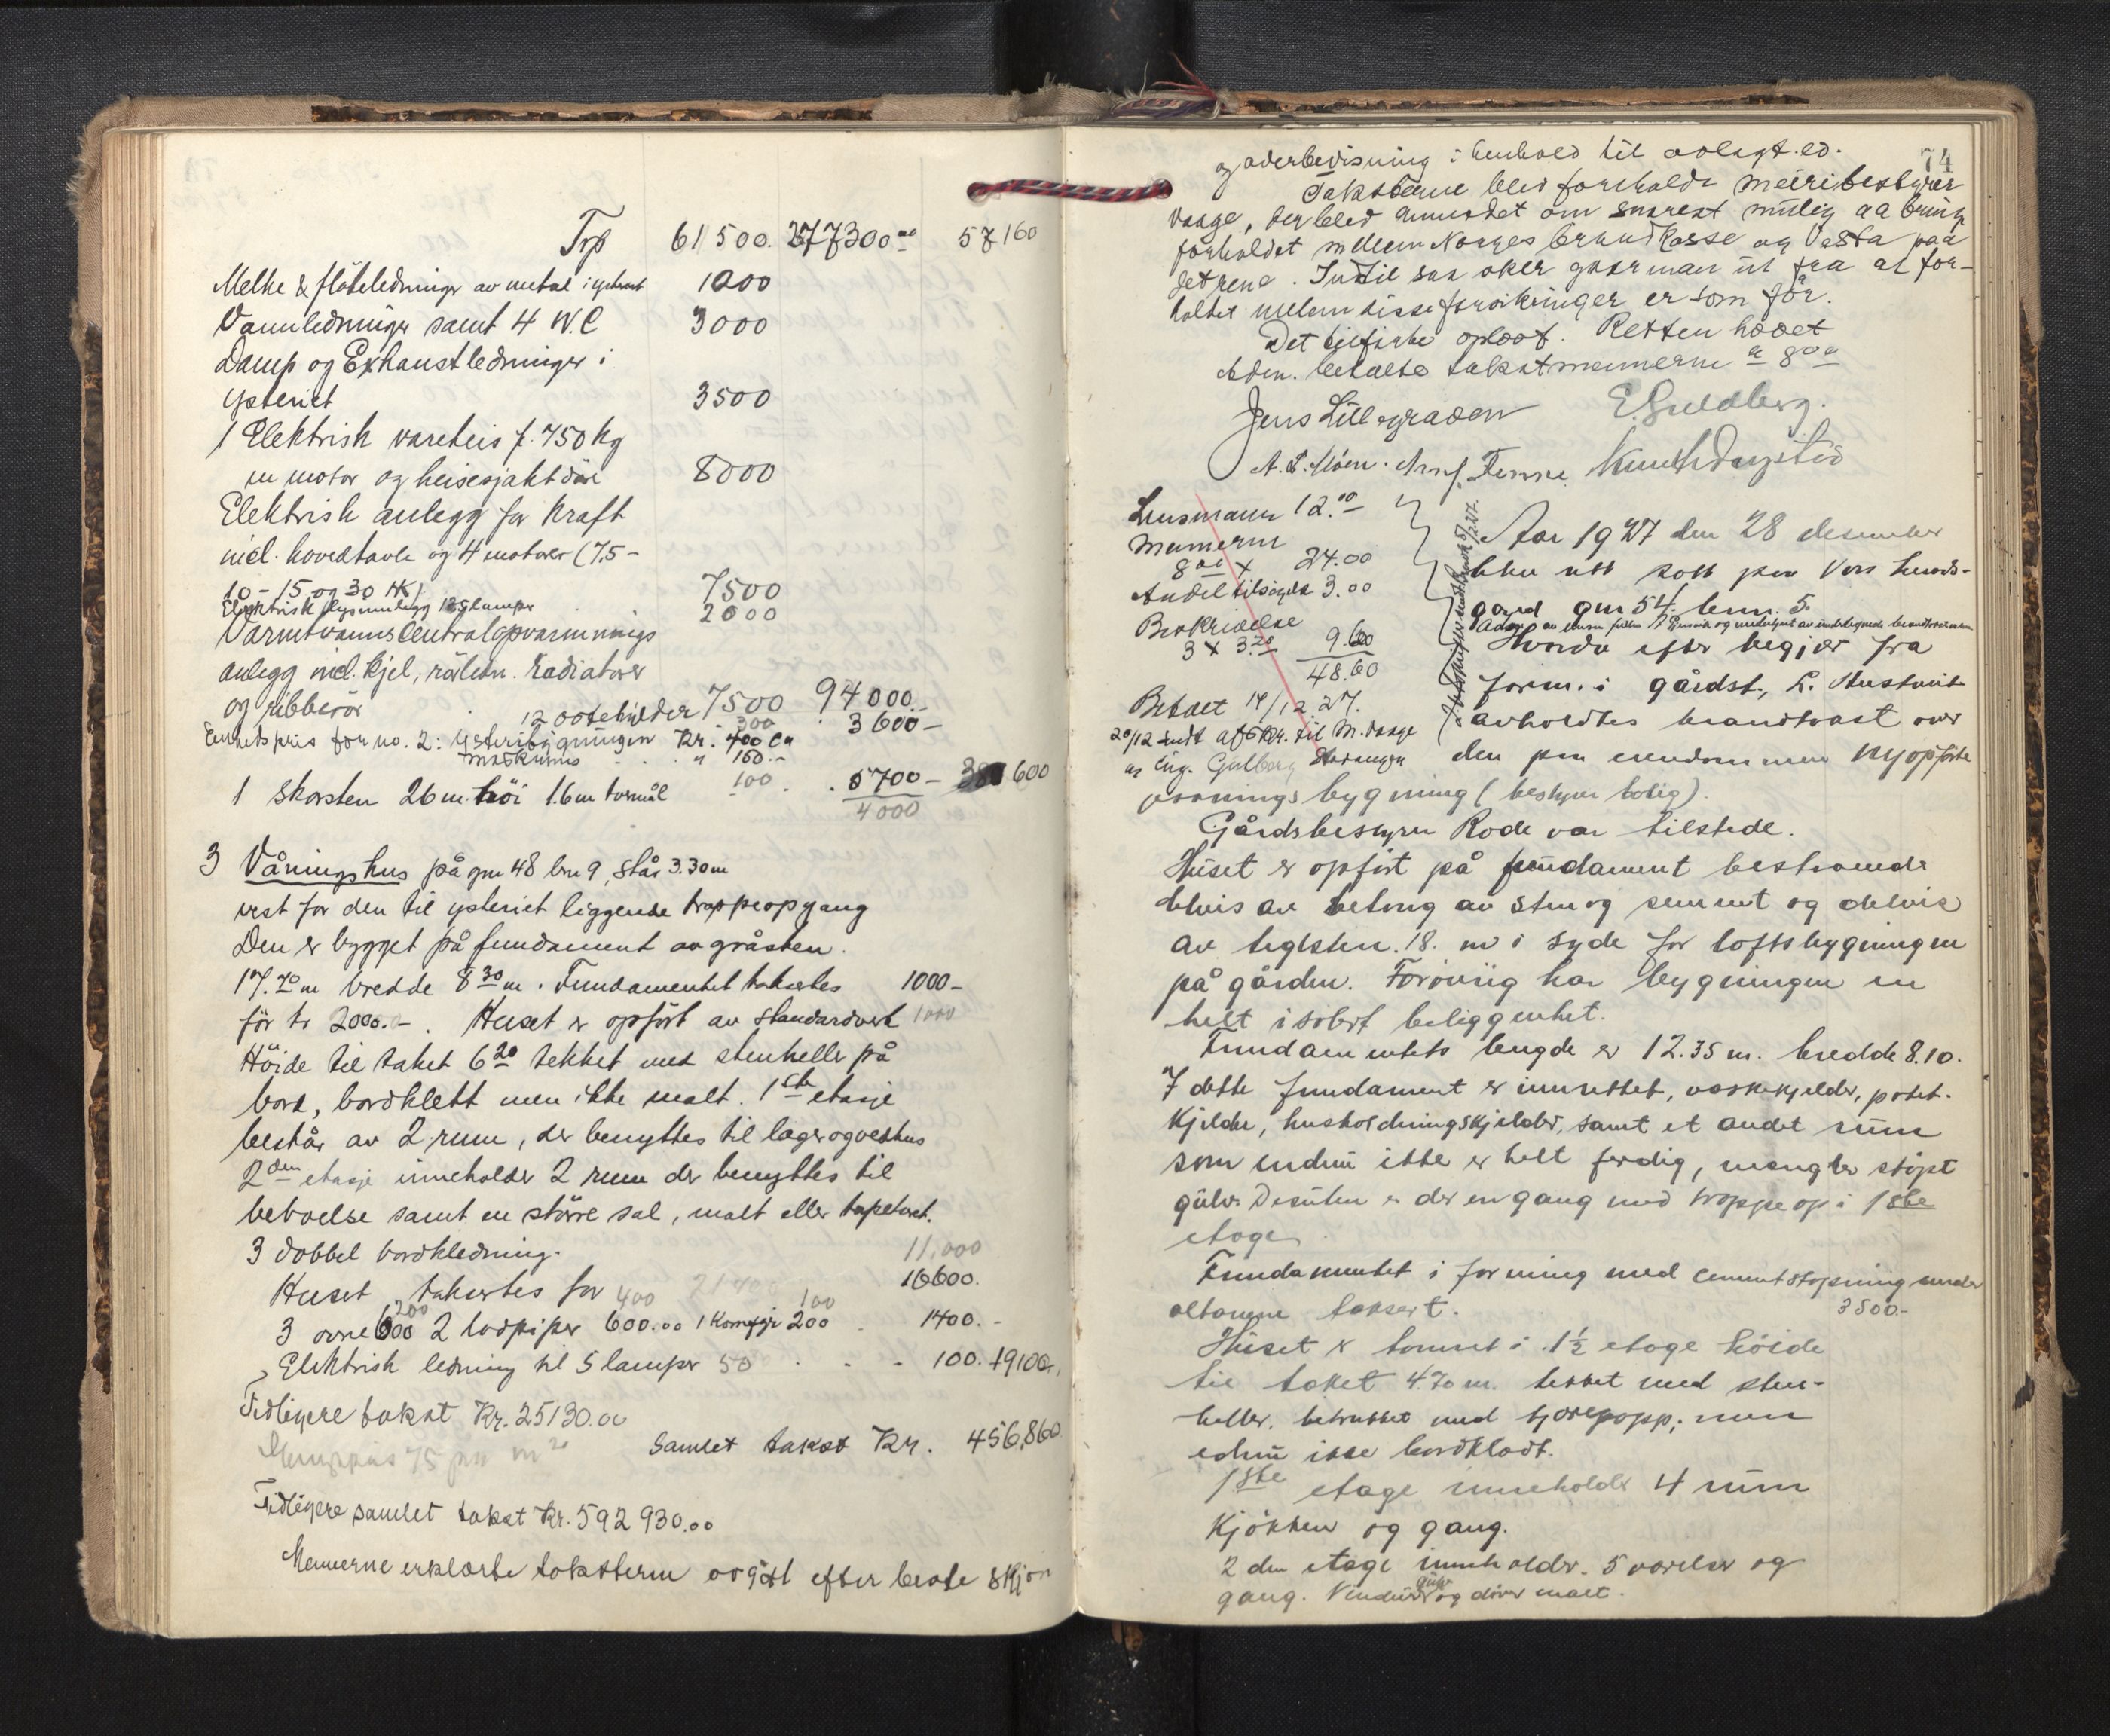 Trp 61500. 277300.00 57160
Melke & flöteledninger av metal i ysteriet 1000
Vannledninger samt 4 W.C 3000
Damp og Exhaustledninger i
ysteriet 3500
1 Elektrisk vareheis f. 750 kg
m motor og heisesjaktdör 8000
Elektrisk anlegg for Kraft
incl. hovedtavle og 4 motorer (7.5-
10-15 og 30 HK) 7500
Elektrisk lysanlegg 125 lamper 2000
Varmtvannscentralopvarmnings
anlegg incl. kjel, rörledn. radiatorer
og ribberör 7500 94000.-
12 ostehylder 300 3600-
Enhetspris for no. 2: Ysteribygningen Kr. 400 ca
Maskinhus " 150.-
1 skorsten 26 m. höi 1.6 m tvermål 100 5700- 600
4000
3 Våningshus på gnr 48 bnr 9, står 3.30 m
vest for den til ysteriet liggende trappeopgang
Den er bygget på fundament av gråsten.
17.70 m bredde 8 30 m. Fundamentet takseres 1000-
för kr 2000.-. Huset er opfört av standardverk 1000
Höide til taket 6 20 tekket med stenheller på
bord, bordklett men ikke malt. 1ste etasje
består av 2 rum, der benyttes til lager og vedhus
2den etasje inneholder 2 rum der benyttes til
beboelse samt en större sal, malt eller tapetsert.
3 dobbel bordkledning. 11.000
Huset taksertes for 400 21400 16600.
3 ovne 600 200 2 lodpiper 600.00 1 Komfyr 200 100 1400.-
Elektrisk ledning til 5 lamper 50 . . - 100. 19100.
Tidligere takst Kr. 25130.00
75 pr m2
Samlet takst Kr. 456,860
Tidligere samlet takst Kr. 592 930.00
Mennerne erklærte taksterne avgit efter beste skjön
74
og overbevisning i henhold til avlagt ed.
Taksterne blev foreholdt meieribestyrer
Vaage, der blev anmodet om snarest mulig aa bringe
forholdet mellem Norges brandkasse og Vesta paa
det rene. Indtil saa sker gaar man ut fra at for-
holdet mellem disse forsikringer er som för.
Det tilförte oplæst. Retten hævet
Adm. betalte takstmennerne a 8 00
Jens Lillegraven E Guldberg.
A. L. Möen. Arnf. Finne. Knut
Lensmann 12.00
Mennerne
8 00 x 24.00
Andel tilsigelse 3.00
Beskrivelse
3 x 3.20 9.60
48.60
Betalt 14/12 27.
20/12 sendt afskr. til M. Vaage
og Ing. Guldberg Stavanger
Aar 1927 den 28 desember
blev rett satt paa Voss Lands-
gard gnr 54 bnr. 5.
Hvorda efter begjær fra
form. i gårdst.,
avholdtes brandtakst over
den paa eiendommen nyopförte
vaanings bygning (bestyrer bolig).
Gårdsbestyrer Rode var tilstede.
Huset er opfört på fundament bestaaende
delvis av betong av sten og sement og delvis
av teglsten. 18. m i syd for loftsbygningen
på gården. Forövrig har bygningen en
helt isolert beliggenhet.
Fundamentets lengde er 12.35 m. bredde 8.10.
I dette fundament er innrettet, vaskekjelder, potet-
kjelder, husholdningskjelder, samt et andet rum
som endnu ikke er helt ferdig, mangler stöpt
gulv. Desuten er der en gang med trappe op i 1ste
etage.
Fundamentet i forening med cementstöpning under
altanerne taksert. 3500.-
Huset er tömret i 1½ etage höide
til taket 4.70 m. tekket med sten-
heller, betrukket med tjærepapp, men
ednu ikke bordklædt.
1ste etage inneholder 4 rum
kjökken og gang.
2 den etage inneholder. 5 værelser og
gang. Vinduer gulv og dörer malt.